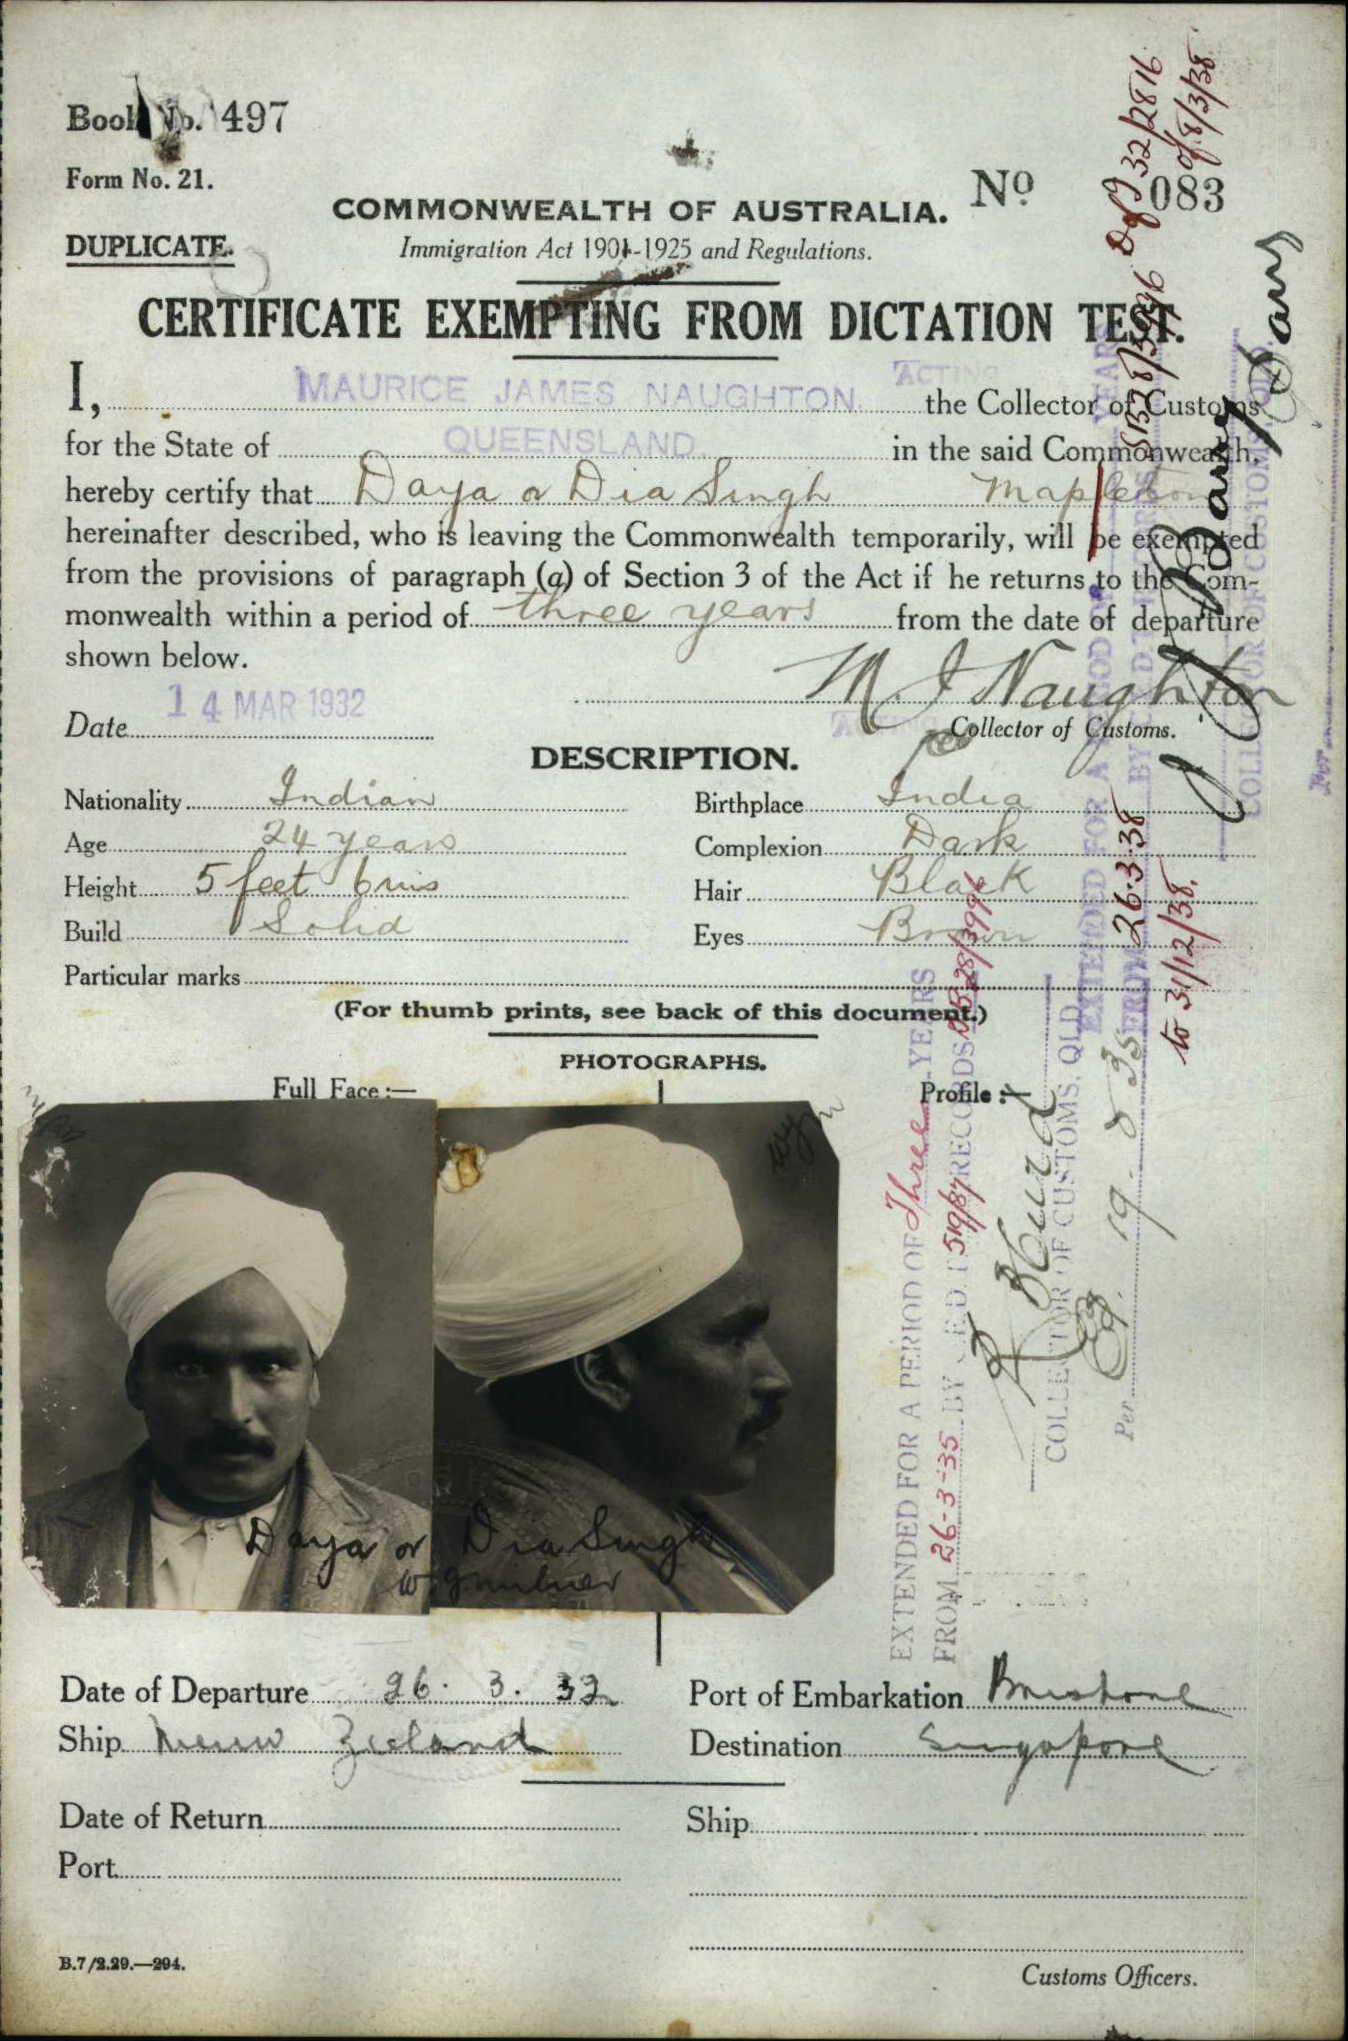 Book No. 497
Form No. 21.
DUPLICATE.
COMMONWEALTH OF AUSTRALIA.
No 083
Immigration Act 1901-1925 and Regulations.
CERTIFICATE EXEMPTING FROM DICTATION TEST.
ACTING
I, MAURICE JAMES NAUGHTON the Collector of Customs
for the State of QUEENSLAND. in the said Commonwealth,
hereby certify that Daya or Dia Singh Mapleton
hereinafter described, who is leaving the Commonwealth temporarily, will be exempted
from the provisions of paragraph (a) of Section 3 of the Act if he returns to the Com-
monwealth within a period of three years from the date of departure
shown below.
M. J Naughton
14 MAR 1932
Date
ACTING Collector of Customs.
DESCRIPTION.
Nationality Indian
Birthplace India
Age 24 years
Complexion Dark
Height 5 feet 6 ins
Hair Black
Build Solid
Eyes Brown
Particular marks
(For thumb prints, see back of this document.)
PHOTOGRAPHS.
Full Face :—
Profile :—
Daya or Dia Singh
Date of Departure 26. 3. 32
Port of Embarkation Brisbane
Ship Nieuw Zeeland
Destination Singapore
Date of Return
Ship
Port
B.7/2.29.—294.
Customs Officers.
EXTENDED FOR A PERIOD OF Three YEARS
FROM 26-3-35 BY
RECORDS
COLLECTOR OF CUSTOMS, QLD
Per
19. 8 35
EXTENDED FOR A PERIOD OF YEARS
FROM 26.3.38 BY
to 31/12/38.
COLLECTOR OF CUSTOMS, QLD.
Per
32/2816
of 8/3/38